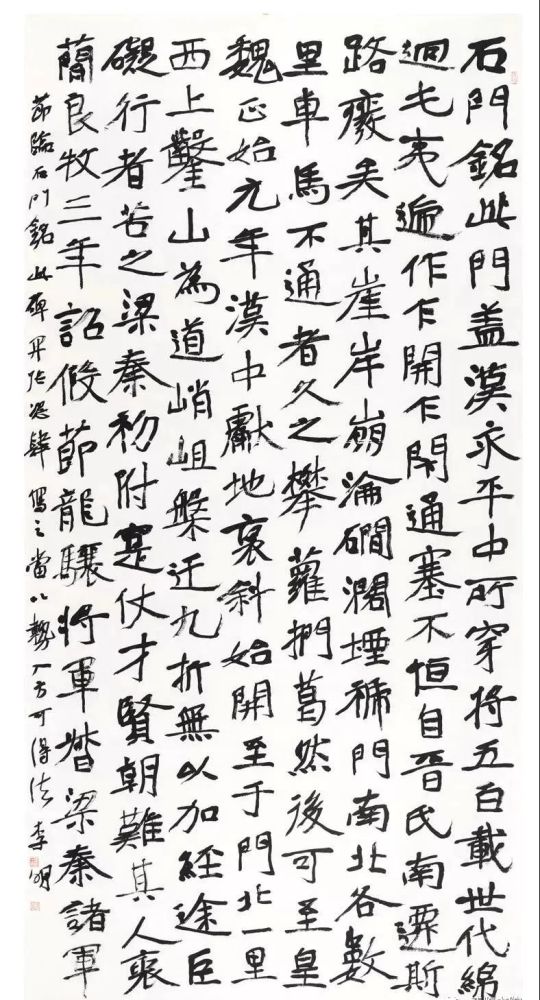 石門銘此門盖漢永平中所穿將五百載世代綿
迴屯夷遞作乍開乍閉通塞不恒自晉氏南遷斯
路廢矣其崖岸崩淪磵閣堙褫門南北各數
里車馬不通者久之攀蘿捫葛然後可至皇
魏正始元年漢中獻地裒斜始開至于門北一里
西上鑿山為道峭岨槃迂九折無以加經途巨
礙行者苦之梁秦初附寔仗才賢朝難其人裒
簡良牧三年詔假節龍驤將軍督梁秦諸軍
節臨石門銘此碑开張恣肆寫之當以勢入方可得法李明